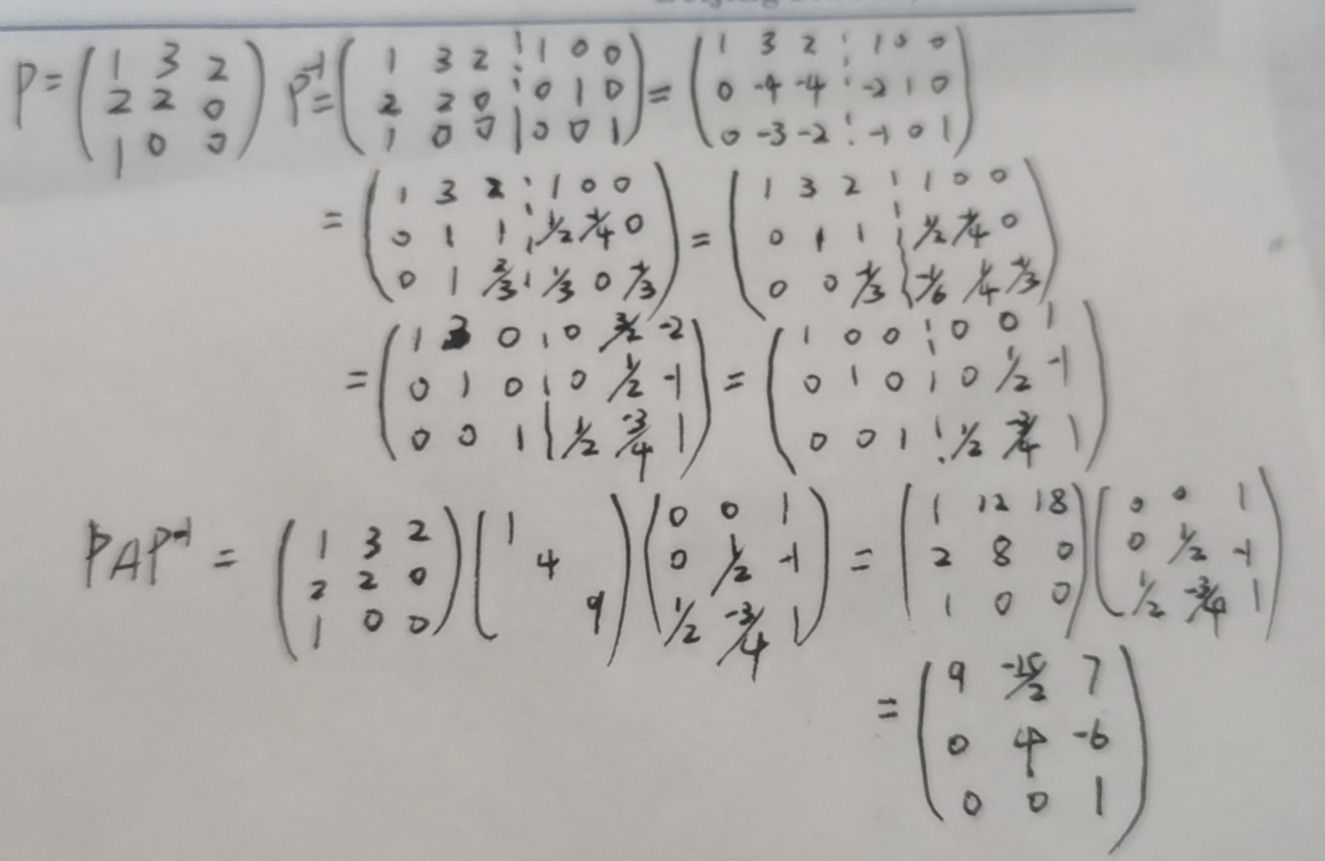 P = ( 1 3 2 ; 2 2 0 ; 1 0 0 ) P⁻¹ = ( 1 3 2 ¦ 1 0 0 ; 2 2 0 ¦ 0 1 0 ; 1 0 0 | 0 0 1 ) = ( 1 3 2 ¦ 1 0 0 ; 0 -4 -4 ¦ -2 1 0 ; 0 -3 -2 ¦ -1 0 1 )
= ( 1 3 2 ¦ 1 0 0 ; 0 1 1 ¦ 1/2 -1/4 0 ; 0 1 2/3 ¦ 1/3 0 -1/3 ) = ( 1 3 2 ¦ 1 0 0 ; 0 1 1 ¦ 1/2 -1/4 0 ; 0 0 -1/3 ¦ -1/6 1/4 -1/3 )
= ( 1 3 0 ¦ 0 3/2 -2 ; 0 1 0 ¦ 0 1/2 -1 ; 0 0 1 | 1/2 -3/4 1 ) = ( 1 0 0 ¦ 0 0 1 ; 0 1 0 ¦ 0 1/2 -1 ; 0 0 1 ¦ 1/2 -3/4 1 )
PAP⁻¹ = ( 1 3 2 ; 2 2 0 ; 1 0 0 ) ( 1 ; 4 ; 9 ) ( 0 0 1 ; 0 1/2 -1 ; 1/2 -3/4 1 ) = ( 1 12 18 ; 2 8 0 ; 1 0 0 ) ( 0 0 1 ; 0 1/2 -1 ; 1/2 -3/4 1 )
= ( 9 -15/2 7 ; 0 4 -6 ; 0 0 1 )